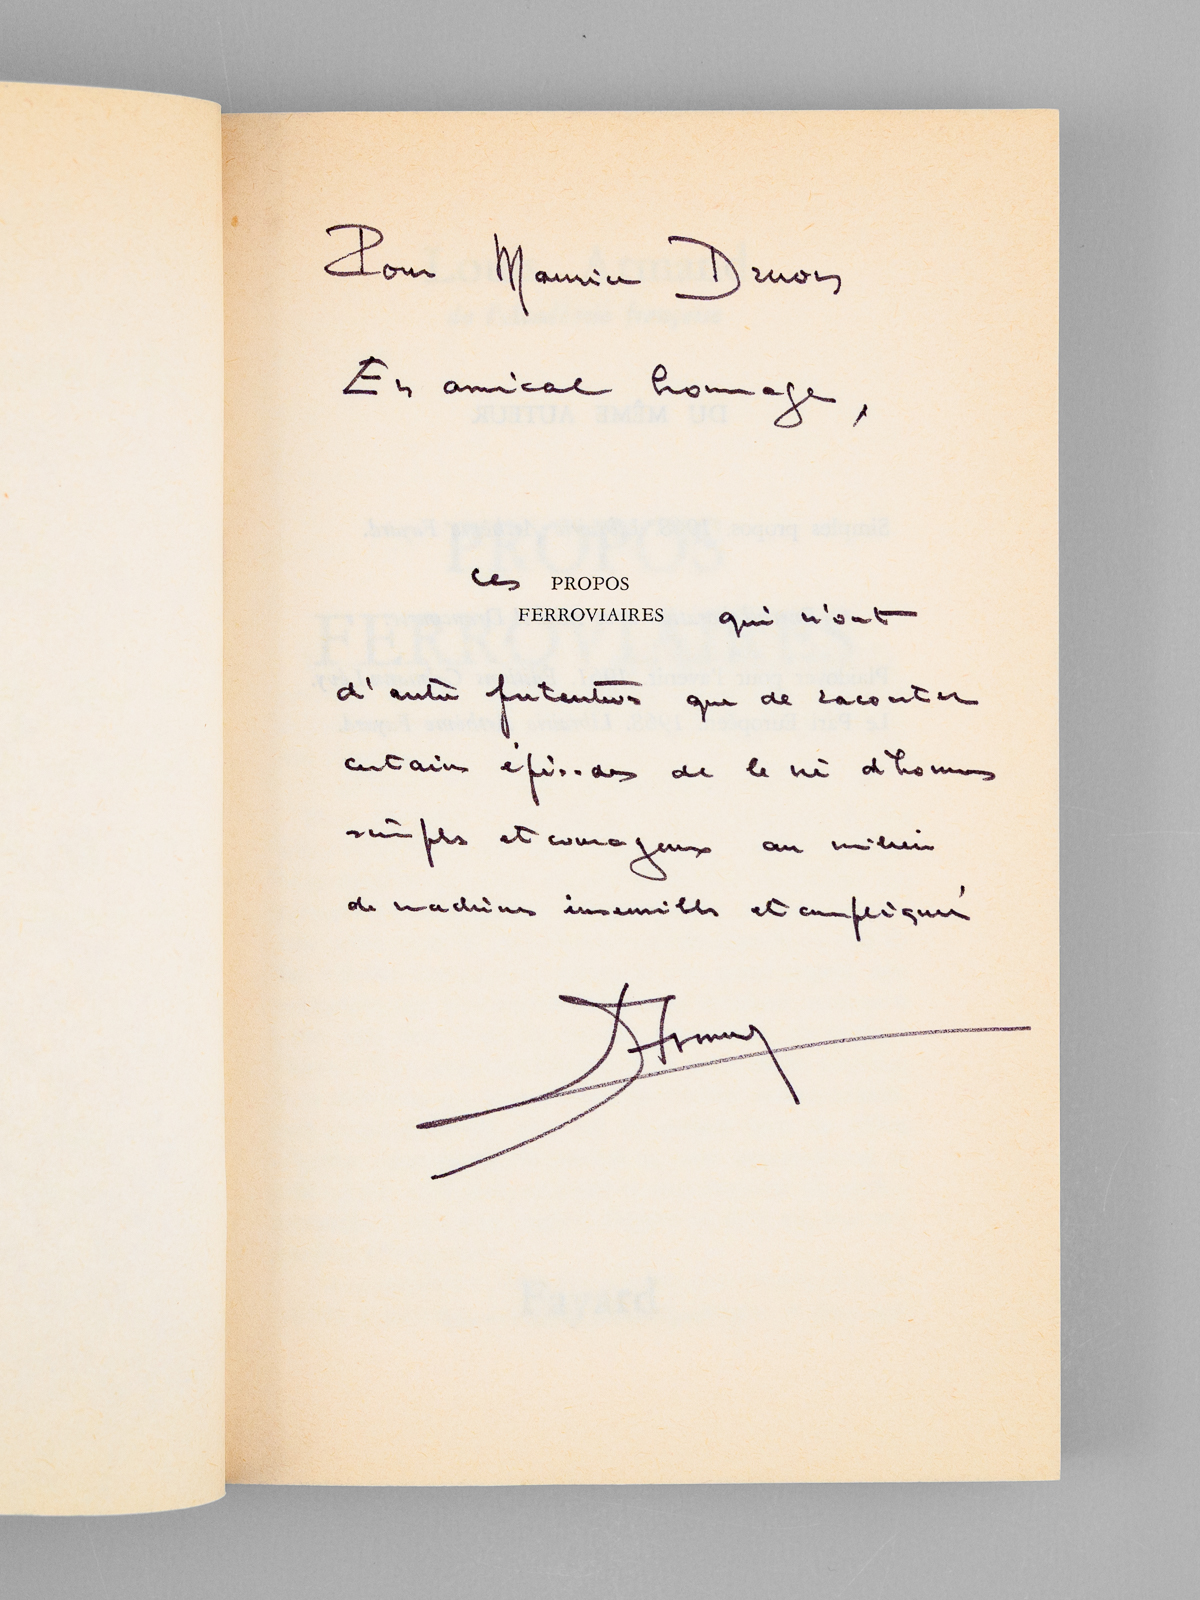 Pour Maurice Druon
En amical hommage,
ces PROPOS
FERROVIAIRES qui n'ont
d'autre prétention que de raconter
certains épisodes de la vie d'hommes
simples et courageux au milieu
de machines insensibles et compliquées
DU MÊME AUTEUR
PROPOS
FERROVIAIRES
Fayard